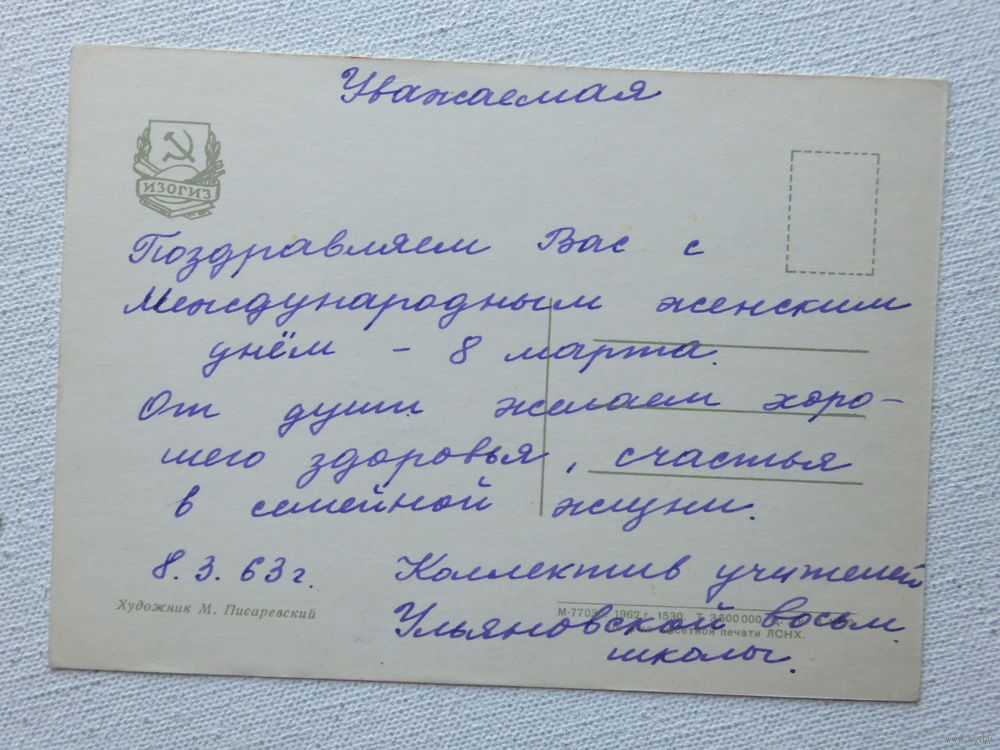 Уважаемая
ИЗОГИЗ
Поздравляем Вас с
Международным женским
днём - 8 марта.
От души желаем хоро-
шего здоровья, счастья
в семейной жизни.
8.3.63г.
Коллектив учителей
Ульяновской восьм.
школы.
Художник М. Писаревский
1962 г. 1530. Т. 3 500 000
печати ЛСНХ.